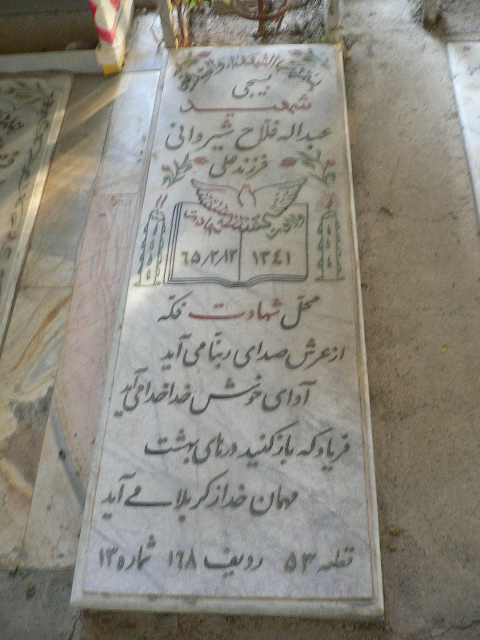 بسیجی
شهید
عبداله فلاح شیروانی
فرزند علی
شهادت
۱۳۴۱
۶۵/۲/۱۲
محل شهادت فکّه
از عرش صدای ربّنا می آید
آوای خوش خدا خدا می آید
فریاد که باز کنید درهای بهشت
مهمان خدا ز کربلا می آید
قطعه ۵۳ ردیف ۱۶۸ شماره ۱۳